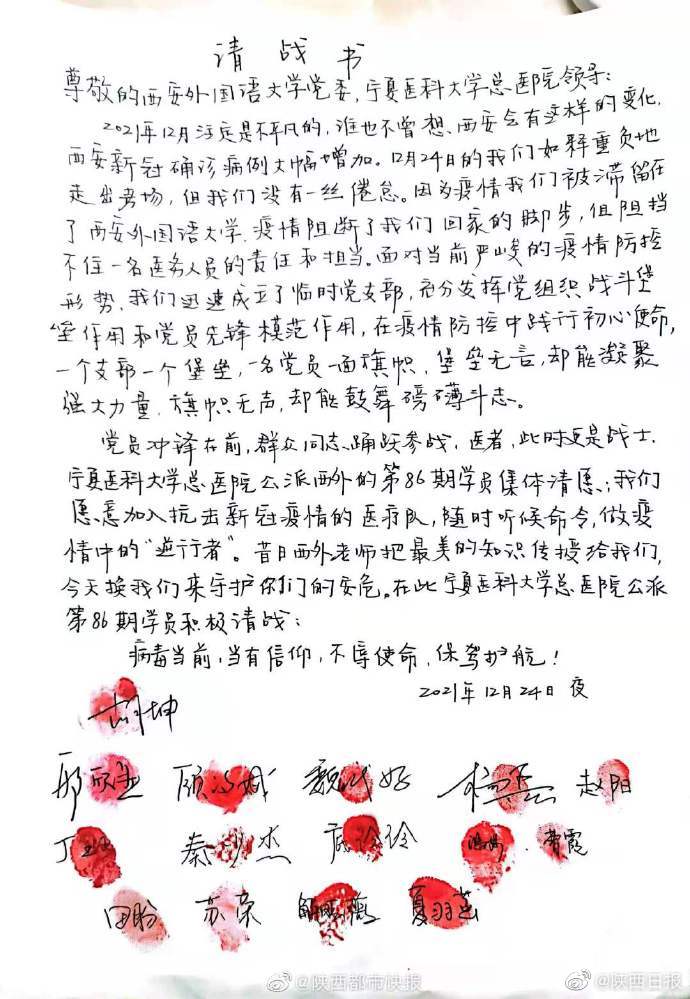 请战书
尊敬的西安外国语大学党委,宁夏医科大学总医院领导:
2021年12月注定是不平凡的,谁也不曾想、西安会有这样的变化,
西安新冠确诊病例大幅增加。12月24日的我们如释重负地
走出考场,但我们没有一丝倦怠。因为疫情我们被滞留在
了西安外国语大学.疫情阻断了我们回家的脚步,但阻挡
不住一名医务人员的责任和担当。面对当前严峻的疫情防控
形势、我们迅速成立了临时党支部,充分发挥党组织战斗堡
垒作用和党员先锋模范作用,在疫情防控中践行初心使命,
一个支部一个堡垒,一名党员一面旗帜.堡垒无言,却能凝聚
强大力量.旗帜无声,却能鼓舞磅礴斗志。
党员冲锋在前,群众同志踊跃参战.医者,此时更是战士.
宁夏医科大学总医院公派西外的第86期学员集体请愿:我们
愿意加入抗击新冠疫情的医疗队,随时听候命令,做疫
情中的“逆行者”。昔日西外老师把最美的知识传授给我们,
今天换我们来守护你们的安危。在此宁夏医科大学总医院公派
第86期学员积极请战:
病毒当前,当有信仰,不辱使命,保驾护航!
2021年12月24日 夜
胡坤
赵阳
秦少杰
费霞
田盼 苏荣 夏羽茜
@陕西都市快报 @陕西日报